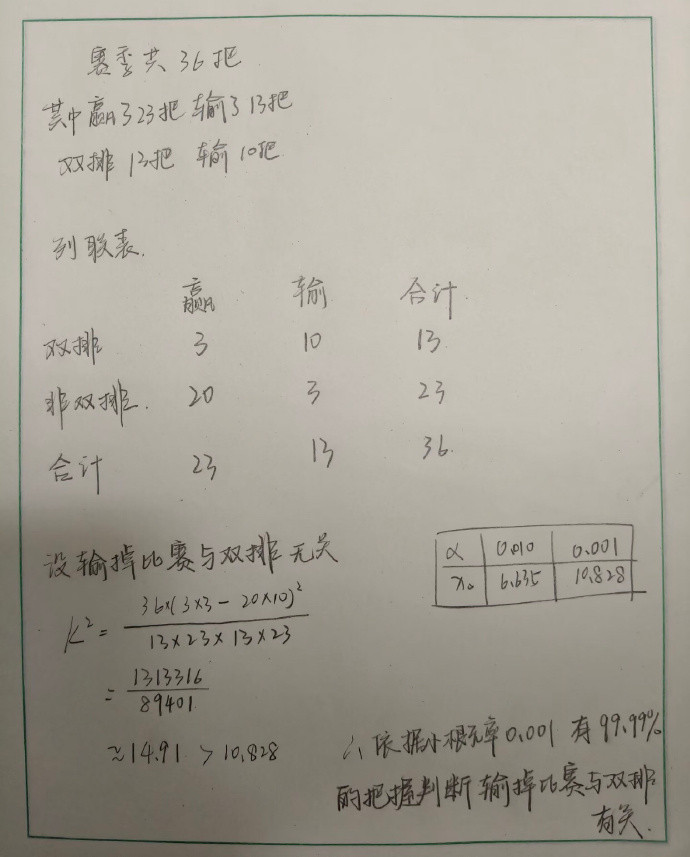 赛季共 36把
其中赢了23把 输了13把
双排 13把 输 10把
列联表.
赢 输 合计.
双排 3 10 13
非双排. 20 3 23
合计 23 13 36.
设输掉比赛与双排无关
α 0.010 0.001
x₀ 6.635 10.828
K² = 36×(3×3-20×10)² / 13×23×13×23
= 1313316 / 89401
≈14.91 > 10.828
∴ 依据小概率0.001 有99.99%
的把握判断输掉比赛与双排
有关.